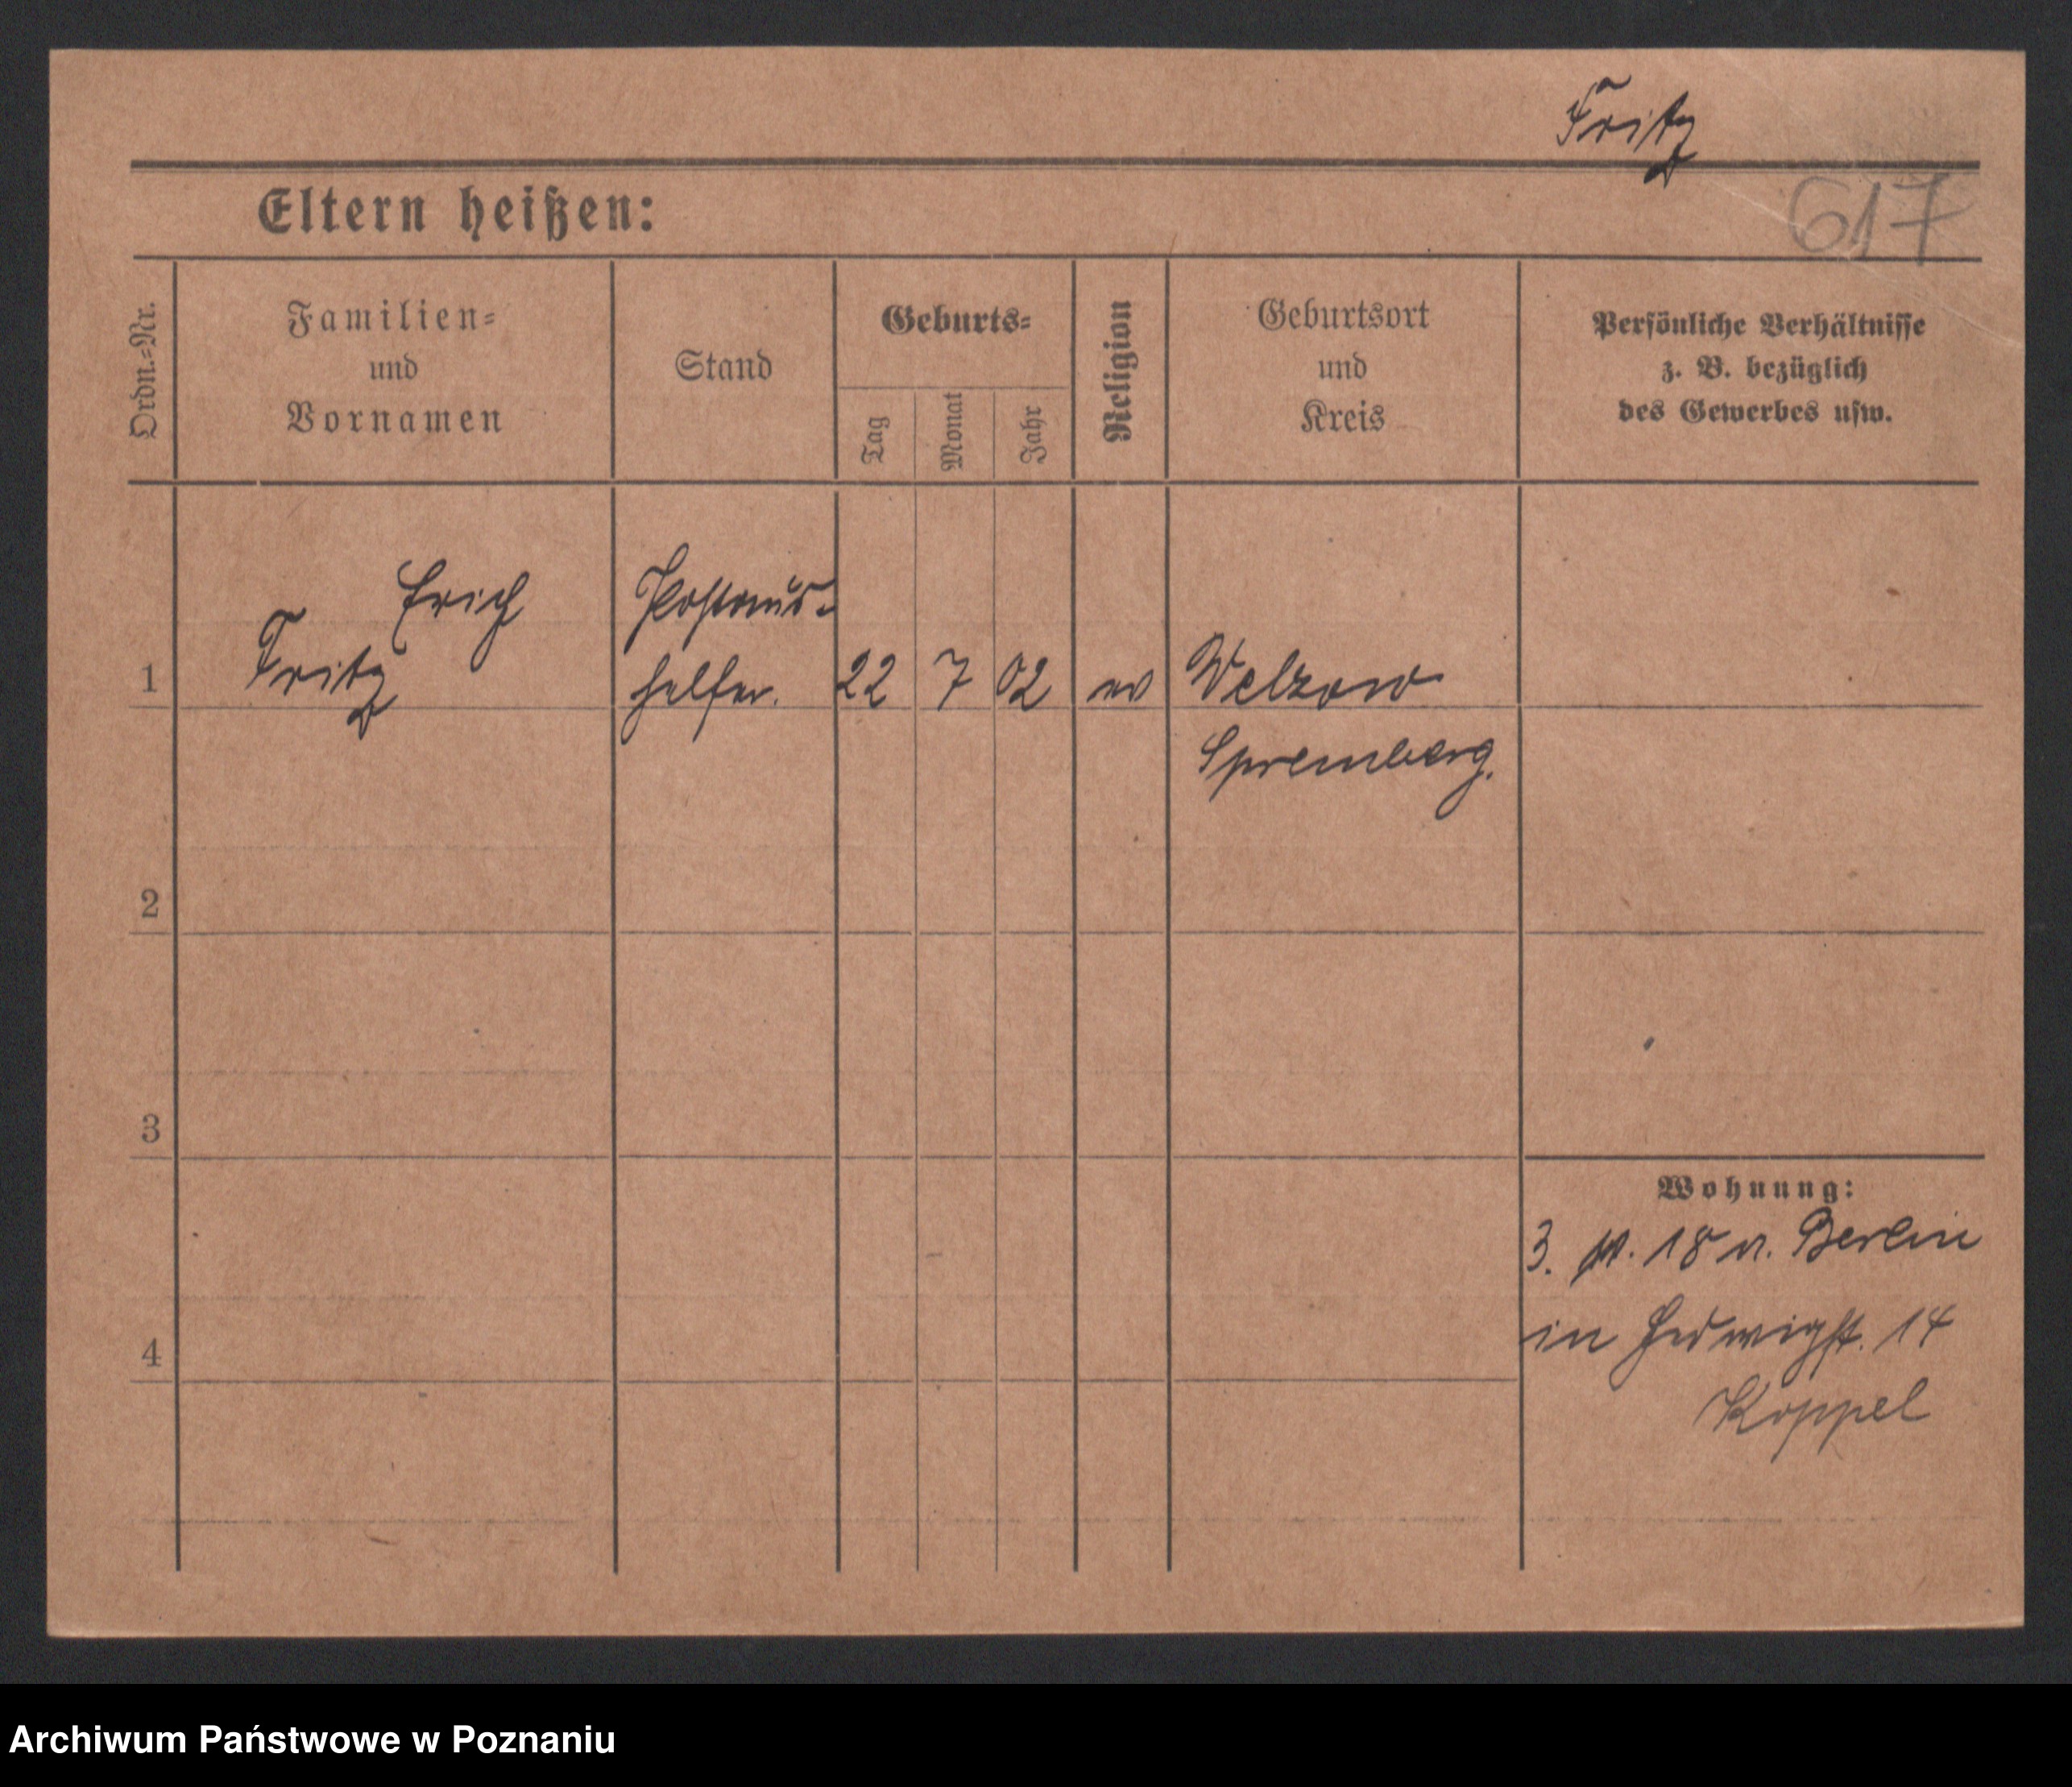 Fritz
Eltern heißen:
617
Ordn.-Nr.
Familien-
und
Vornamen
Stand
Geburts-
Tag
Monat
Jahr
Religion
Geburtsort
und
Kreis
Persönliche Verhältnisse
z. B. bezüglich
des Gewerbes usw.
Erich
Fritz
Postaus-
helfer.
1
22 7 02 ev
Welzow
Spremberg.
2
3
4
Wohnung:
3. 18 v. Berlin
in Hedwigst. 14
Koppel
Archiwum Państwowe w Poznaniu